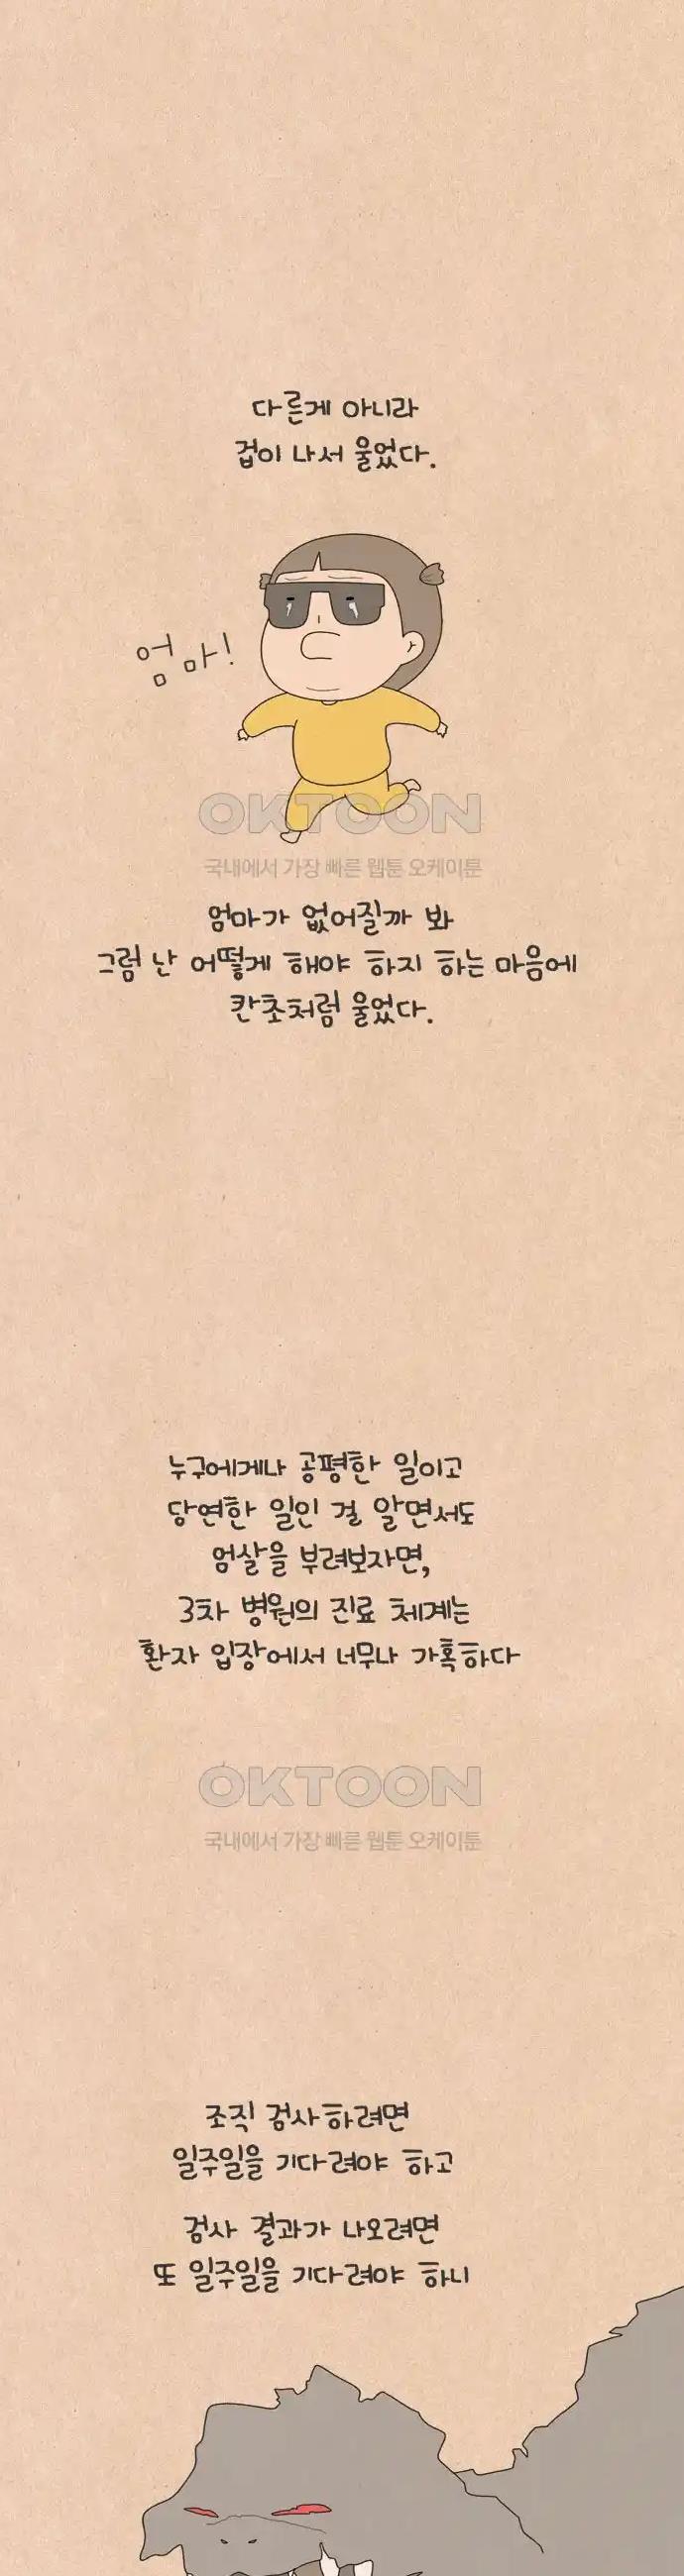 다른게 아니라
겁이 나서 울었다.
엄마!
OKTOON
국내에서 가장 빠른 웹툰 오케이툰
엄마가 없어질까 봐
그럼 난 어떻게 해야 하지 하는 마음에
칸쵸처럼 울었다.
누구에게나 공평한 일이고
당연한 일인 걸 알면서도
엄살을 부려보자면,
3차 병원의 진료 체계는
환자 입장에서 너무나 가혹하다
OKTOON
국내에서 가장 빠른 웹툰 오케이툰
조직 검사하려면
일주일을 기다려야 하고
검사 결과가 나오려면
또 일주일을 기다려야 하니